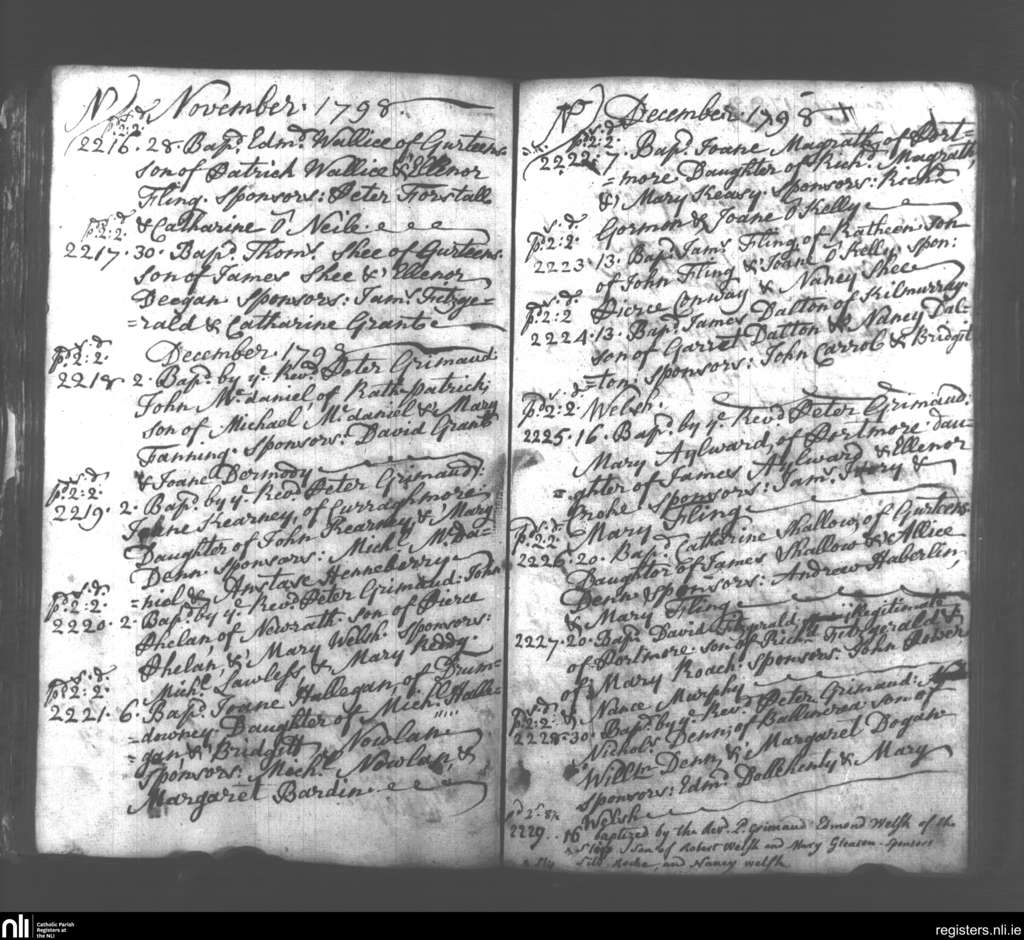 No) November. 1798
s. d
pd: 2: 2
2216. 28. Bapd. Edmd. Wallice of Gurteens
son of Patrick Wallice & Ellenor
Fling. Sponsors: Peter Forstall
& Catharine O'Neile.
s. d
pd: 2: 2.
2217. 30. Bapd. Thoms. Shee of Gurteens.
son of James Shee & Ellenor
Deegan Sponsors: Jams. Fitzge=
=rald & Catharine Grant
December. 1798
s. d
pd: 2: 2.
2218. 2. Bapd. by ye. Revd. Peter Grimaud
John Mcdaniel, of Rath-patrick;
son of Michael Mcdaniel & Mary
Fanning. Sponsors: David Grant
& Joane Dermody
s. d
pd: 2: 2.
2219. 2. Bapd. by ye. Revd. Peter Grimaud;
Joane Kearney, of Curraghmore.
Daughter of John Kearney, & Mary
Denn. Sponsors: Michl. McDa=
=niel & Anstase Henneberry
s. d
pd: 2: 2.
2220. 2. Bapd. by ye. Revd. Peter Grimaud: John
Phelan, of Newrath. son of Pierce
Phelan, & Mary Welsh. Sponsors:
Michl. Lawless & Mary Reddy.
s. d
pd: 2: 2.
2221. 6. Bapd. Joane Hallegan, of Drum=
=downey. Daughter of Michl. Halle=
=gan, & Bridgitt Nowlan
Sponsors: Michl. Nowlan &
Margaret Bardin.
No) December. 1798
s. d
pd: 2: 2.
2222. 7. Bapd. Joane Magrath of Port=
=more Daughter of Richd. Magrath,
& Mary Keasy. Sponsors: Richd.
Gormon & Joane O'Kelly
s. d
pd: 2: 2.
2223. 13. Bapd. Jams. Fling, of Ratheen son
of John Fling & Joane O'Kelly, Spon:
Pierce Conway & Nancy Shee
s. d.
pd: 2: 2
2224. 13. Bapd. James Dalton of Kilmurray.
son of Garret Dalton & Nancy Dal=
=ton, Sponsors: John Carrol & Bridgit
Welsh.
s. d
pd: 2: 2.
2225. 16. Bapd. by ye. Revd. Peter Grimaud:
Mary Aylward, of Portmore. dau=
=ghter of James Aylward & Ellenor
Grohe Sponsors: Jams. Ivory &
Mary Fling
s. d
pd: 2: 2
2226. 20. Bapd. Catharine Shallow, of Gurteens.
Daughter of James Shallow & Allice
Denn. Sponsors: Andrew Haberlin,
& Mary Fling
2227. 20. Bapd. David Fitzgerald, illegitimate
of Portmore. son of Richd. Fitzgerald &
of Mary Roach. Sponsors: John Power
& Nance Murphy.
s. d
pd: 2: 2
2228. 30. Bapd. by ye. Revd. Peter Grimaud:
Nichols. Denn, of Ballincrea son of
Willm. Denn, & Margaret Dogan
Sponsors: Edmd. Dollehenty & Mary
Welsh
2229. 16 baptized by the Revd. P. Grimaud Edmond Welsh of the
son of Robert Welsh and Mary Gleason - Sponsors
Roche, and Nancy Welsh.
nli
Catholic Parish
Registers at
the NLI
registers.nli.ie